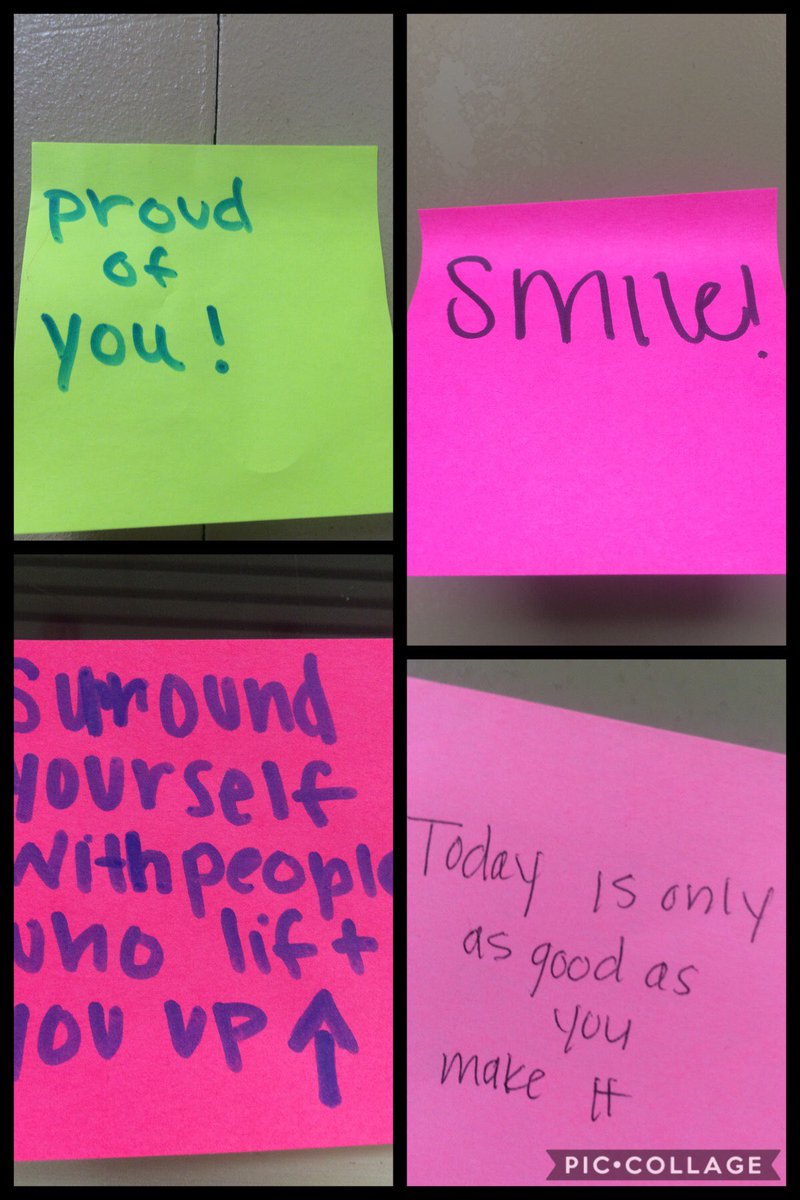 proud
of
you!
smile!
Surround
yourself
with people
who lift
you up ↑
Today is only
as good as
you
make it
PIC•COLLAGE